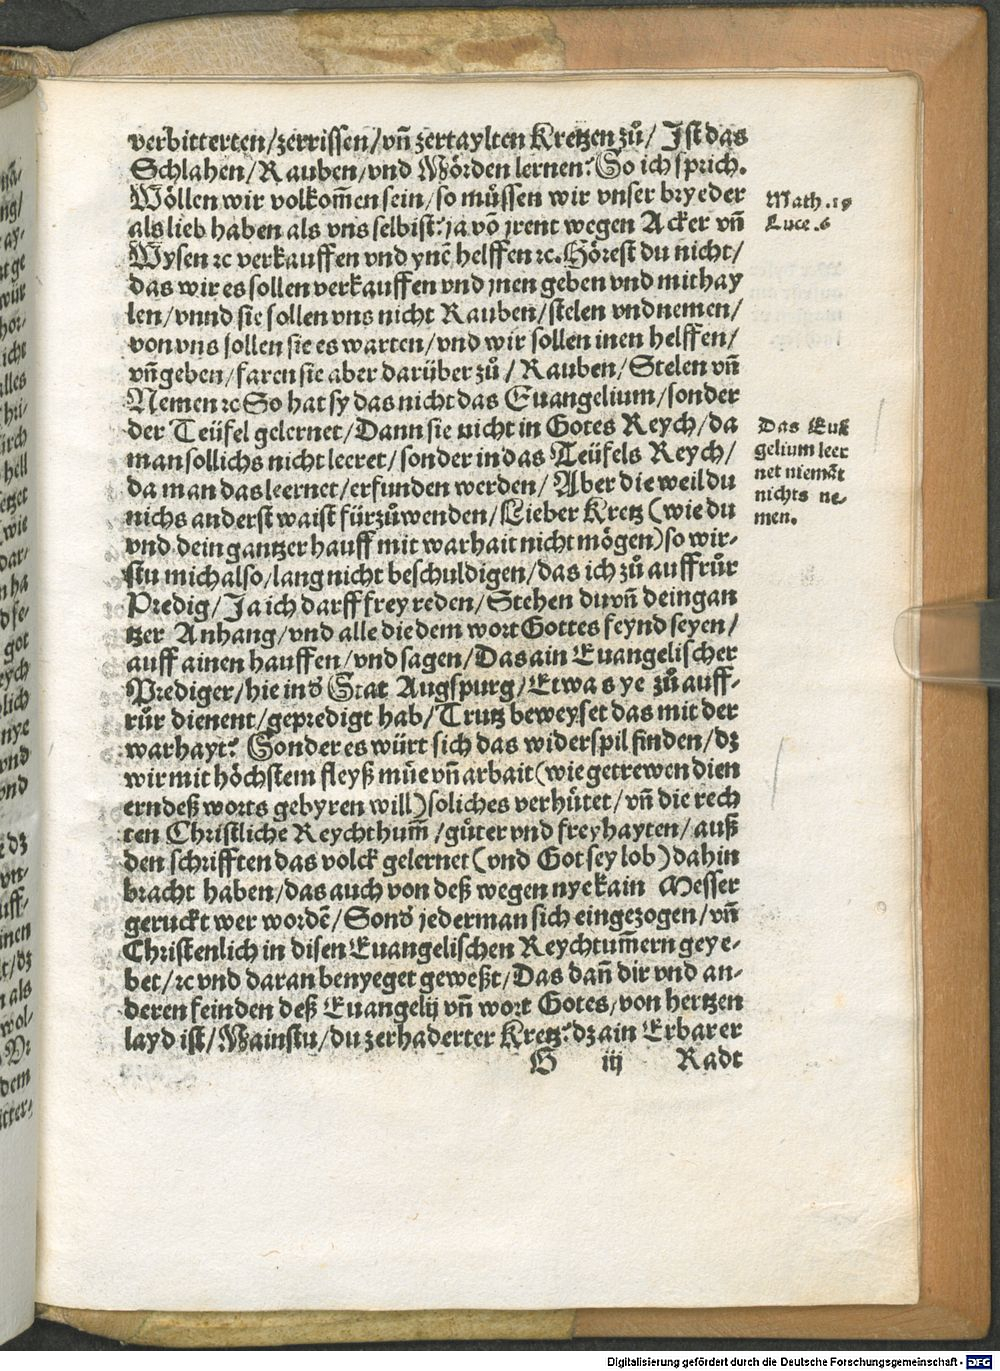 verbitterten/zerrissen/vñ zertaylten Kretzen zů/ Ist das
Schlahen/Rauben/vnd Mörden lernen? So ich sprich.
Wöllen wir volkom̃en sein/so müssen wir vnser bryeder
als lieb haben als vns selbist? ja võ jrent wegen Acker vñ
Wysen ⁊c verkauffen vnd ynẽ helffen ⁊c. Hörest du nicht/
das wir es sollen verkauffen vnd jnen geben vnd mithay
len/vnnd sie sollen vns nicht Rauben/stelen vnd nemen/
von vns sollen sie es warten/vnd wir sollen inen helffen/
vñ geben/faren sie aber darüber zů/Rauben/Stelen vñ
Nemen ⁊c So hat sy das nicht das Euangelium/sonder
der Teüfel gelernet/Dann sie nicht in Gotes Reych/da
man sollichs nicht leeret/sonder in das Teüfels Reych/
da man das leernet/erfunden werden/Aber die weil du
nichs anderst waist fürzůwenden/Lieber Kretz (wie du
vnd dein gantzer hauff mit warhait nicht mögen) so wir-
stu mich also/lang nicht beschuldigen/das ich zů auffrůr
Predig/Ja ich darff frey reden/Stehen du vñ dein gan
tzer Anhang/vnd alle die dem wort Gottes feynd seyen/
auff ainen hauffen/vnd sagen/Das ain Euangelischer
Prediger/hie in d̕ Stat Augspurg/Etwas ye zů auff-
růr dienent/gepredigt hab/Trutz beweyset das mit der
warhayt? Sonder es würt sich das widerspil finden/dz
wir mit höchstem fleyß müe vñ arbait (wie getrewen dien
ern deß worts gebyren will) soliches verhütet/vñ die rech
ten Christliche Reychthum̃/güter vnd freyhayten/auß
den schrifften das volck gelernet (vnd Got sey lob) dahin
bracht haben/das auch von deß wegen nye kain Messer
geruckt wer wordẽ/Sond̕ jederman sich eingezogen/vñ
Christenlich in disen Euangelischen Reychtum̃ern geye-
bet/⁊c vnd daran benyeget geweßt/Das dañ dir vnd an-
deren feinden deß Euangelij vñ wort Gotes/von hertzen
layd ist/Mainstu/du zerhaderter Kretz? dz ain Erbarer
G iij Radt
Math. 19
Luce. 6
Das Euã
gelium leer
net niemãt
nichts ne-
men.
Digitalisierung gefördert durch die Deutsche Forschungsgemeinschaft - DFG